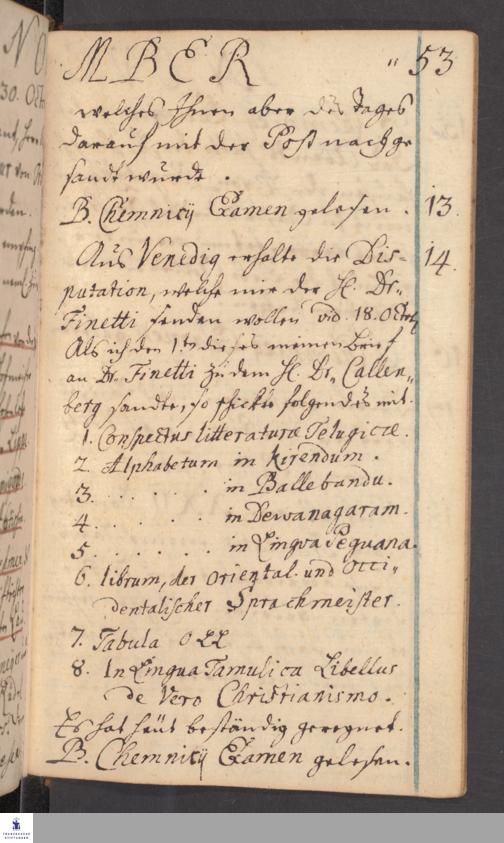 MBER " 53
welches Ihnen aber des Tages
darauf mit der Post nachge
sandt wurde.
B. Chemnicij Examen gelesen. 13.
Aus Venedig erhalte die Dis= 14.
putation, welche mir der H. Dr.
Finetti senden wollen vid. 18. Octobr
Als ich den 1.ten dieses meinen Brief
an Dr. Finetti zu dem H. Dr. Callen=
berg sandte, so schickte folgendes mit.
1. Conspectus litteraturæ Telugicæ.
2. Alphabetum in Kirendum.
3. . . . . . . in Ballebandu.
4. . . . . . . in Dewanagaram.
5. . . . . . . in Lingva Peguana.
6. librum, der oriental. und Occi=
dentalischer Sprachmeister.
7. Tabula
8. In Lingua Tamulica Libellus
de Vero Christianismo.
Es hat heut beständig geregnet.
B. Chemnicij Examen gelesen.
FRANCKESCHE
STIFTUNGEN